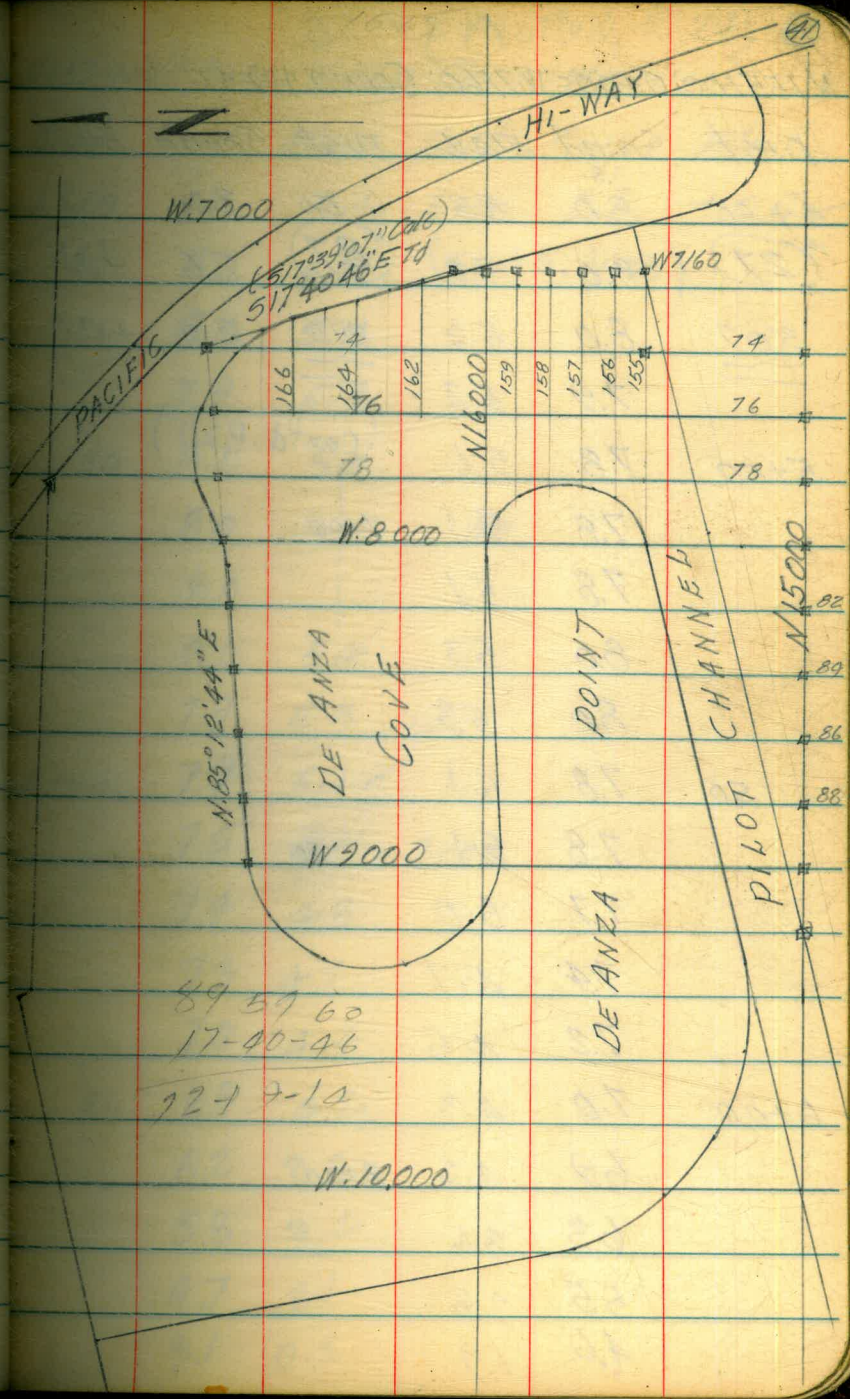 41
HI-WAY
PACIFIC
W.7000
(S17°39'07" Calc)
S17°40'46"E Td
W7160
74
74
76
76
78
78
166
164
162
N16000
159
158
157
156
155
W.8000
N15000
82
84
86
88
N.85°12'44"E
DE ANZA
COVE
DE ANZA
POINT
PILOT CHANNEL
W9000
89 59 60
17-40-46
72-19-14
W.10,000